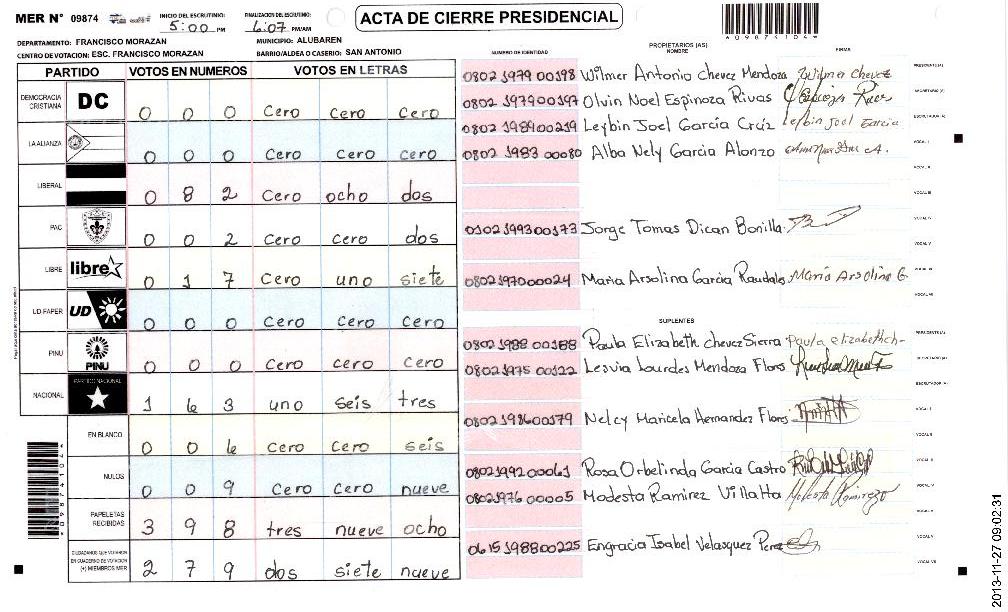 MER N° 09874
INICIO DEL ESCRUTINIO: 5:00 PM
FINALIZACION DEL ESCUTINIO: 6:07 PM/AM
ACTA DE CIERRE PRESIDENCIAL
DEPARTAMENTO: FRANCISCO MORAZAN
MUNICIPIO: ALUBAREN
CENTRO DE VOTACION: ESC. FRANCISCO MORAZAN
BARRIO/ALDEA O CASERIO: SAN ANTONIO
PARTIDO VOTOS EN NUMEROS VOTOS EN LETRAS
DEMOCRACIA CRISTIANA DC 0 0 0 Cero Cero Cero
LA ALIANZA 0 0 0 Cero Cero cero
LIBERAL 0 8 2 Cero ocho dos
PAC 0 0 2 Cero Cero dos
LIBRE libre 0 1 7 Cero uno siete
UD FAPER UD 0 0 0 Cero Cero Cero
PINU PINU 0 0 0 Cero Cero Cero
NACIONAL PARTIDO NACIONAL 1 6 3 uno seis tres
EN BLANCO 0 0 6 Cero Cero seis
NULOS 0 0 9 Cero Cero nueve
PAPELETAS RECIBIDAS 3 9 8 tres nueve ocho
CIUDADANOS QUE VOTARON EN CUADERNO DE VOTACION (+) MIEMBROS MER 2 7 9 dos siete nueve
PROPIETARIOS (AS)
NUMERO DE IDENTIDAD NOMBRE FIRMA
0802 1979 00198 Wilmer Antonio Chevez Mendoza Wilmer Chevez PRESIDENTE(A)
0802 1979 00197 Olvin Noel Espinoza Rivas SECRETARIO (A)
0802 1989 00219 Leybin Joel García Cruz Leybin Joel Garcia ESCRUTADOR (A)
0802 1983 00080 Alba Nely Garcia Alonzo VOCAL I
VOCAL II
VOCAL III
0102 1993 00173 Jorge Tomas Dican Bonilla VOCAL IV
VOCAL V
0802 1970 00024 Maria Arsolina Garcia Raudales Maria Arsolina G. VOCAL VI
VOCAL VII
SUPLENTES
0802 1988 00188 Paula Elizabeth chevez Sierra Paula elizabeth ch- PRESIDENTE(A)
0802 1975 00122 Lesvia Lourdes Mendoza Flores SECRETARIO (A)
ESCRUTADOR (A)
0802 1986 00179 Nelcy Maricela Hernandez Flores VOCAL I
VOCAL II
0802 1992 00061 Rosa Orbelinda Garcia Castro VOCAL III
0802 1976 00005 Modesta Ramirez Villalta Modesta Ramirez VOCAL IV
VOCAL V
0615 1988 00225 Engracia Isabel Velasquez Perez VOCAL VI
VOCAL VII
2013-11-27 09:02:31